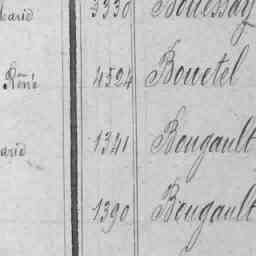 Marie 3330 Bouessay
René 4524 Bouetel
Marie 1341 Bougault
1390 Bougault